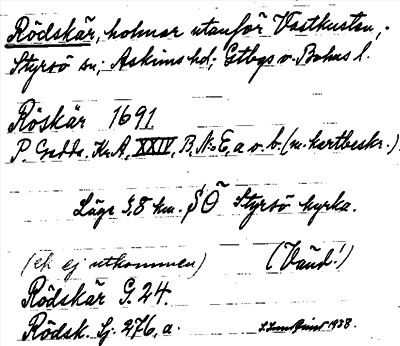 Rödskär, holmar utanför Västkusten,
Styrsö sn; Askims hd; Gtbgs o. Bohus l.
Röskär 1691
P. Gedda. Kr.A, XXIV, B, N:o E, a o. b. (m. kartbeskr.)
Läge 3,8 km. SO Styrsö kyrka.
(ek ej utkommen) (Vänd!)
Rödskär G. 24.
Rödsk. Sj. 276, a. 1938.